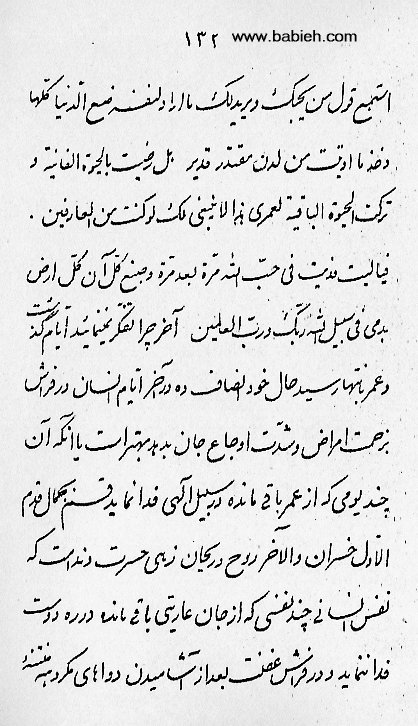 ١٣٢ www.babieh.com
استمع قول من يحبك و يريد لك ما اراد لنفسه ضع الدنيا كلها
و خذ ما اوتيت من لدن مقتدر قدير بل رضيت بالحيوة الفانية و
تركت الحيوة الباقية لعمرى هذا لا ينبغى لك لو كنت من العارفين .
فياليت فديت فى حب الله مرة بعد مرة و صبغ كل آن كل ارض
بدمى فى سبيل الله ربك و رب العالمين آخر چرا تفكر نمينمائيد ايام گذشت
و عمر بانتها رسيد حال خود انصاف ده در آخر ايام انسان در فراش
بزحمت امراض و شدت اوجاع جان بدهد بهتر است يا آنكه آن
چند يومى كه از عمر باقى مانده در سبيل الهى فدا نمايد قسم بجمال قدم
الاول خسران و الآخر روح و ريحان زهى حسرت و ندامت كه
نفس انسانى چند نفسى كه از جان عاريتى باقى مانده در ره دوست
فدا ننمايد و در فراش غفلت بعد از آشاميدن دواهاى مكروهه منتنه